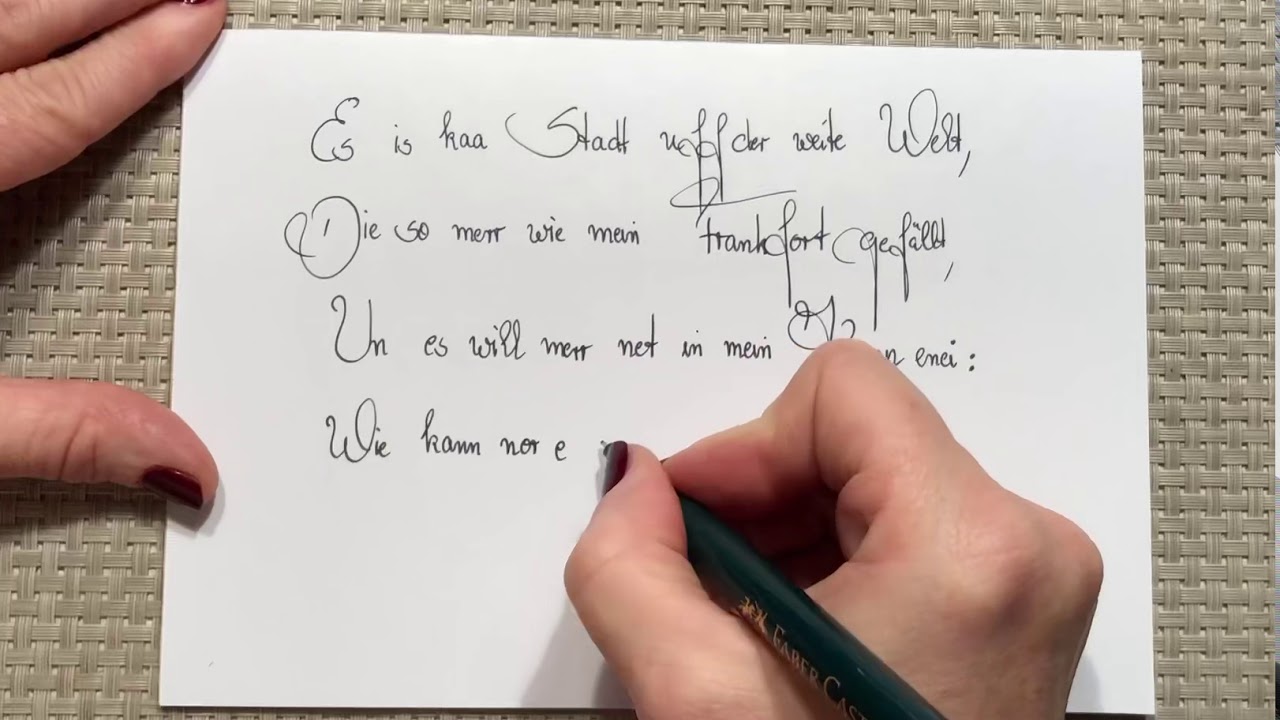 Es is kaa Stadt uff der weite Welt,
Die so merr wie mein Frankfort gefällt,
Un es will merr net in mein enei:
Wie kann nor e
FABER CAST